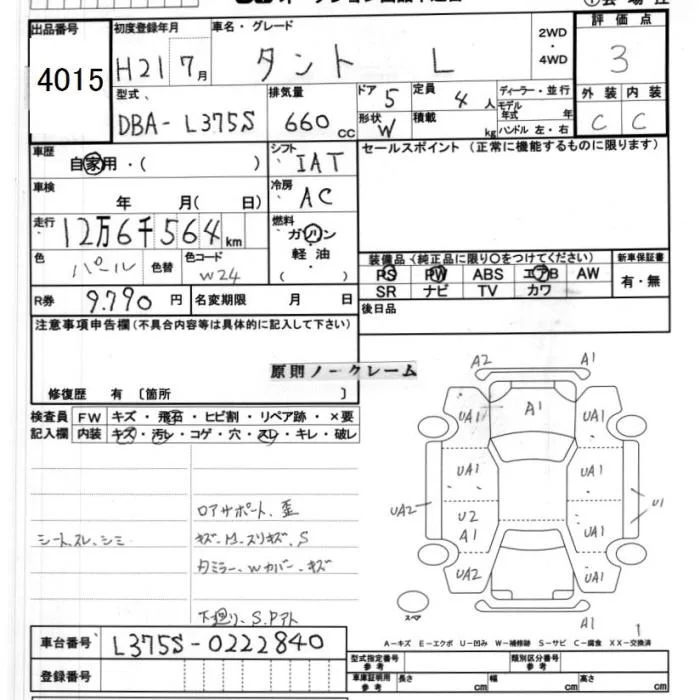 出品番号 初度登録年月 車名・グレード 2WD・4WD 評価点
4015 H21 7月 タント L 3
型式 排気量 ドア 5 定員 4人 ディーラー・並行 外装 内装
DBA-L375S 660cc 形状 W 積載 kg モデル年式 年 ハンドル 左・右 C C
車歴 自家用・( ) シフト IAT セールスポイント (正常に機能するものに限ります)
車検 年 月( 日) 冷房 AC
走行 12万6千564km 燃料 ガソリン 軽油 ( )
色 パール 色替 色コード W24
装備品(純正品に限り○をつけてください) 新車保証書
PS PW ABS エアB AW 有・無
SR ナビ TV カワ
R券 9.790円 名変期限 月 日 後日品
注意事項申告欄(不具合内容等は具体的に記入して下さい)
原則ノークレーム
修復歴 有〔箇所 〕
検査員 FW キズ・飛石・ヒビ割・リペア跡・×要
記入欄 内装 キズ・汚レ・コゲ・穴・スレ・キレ・破レ
A2 A1
UA1 A1 UA1
UA1 UA1
UA2 U2 A1 UA1 U1
UA2 UA1
A1
スペア
ロアサポート、歪
シート、スレ、シミ
下廻り、S.Pアト
A-キズ E-エクボ U-凹み W-補修跡 S-サビ C-腐食 XX-交換済
車台番号 L375S-0222840
登録番号
型式指定番号 参考 類別区分番号 参考
車庫証明用 参考 長さ cm 幅 cm 高さ cm